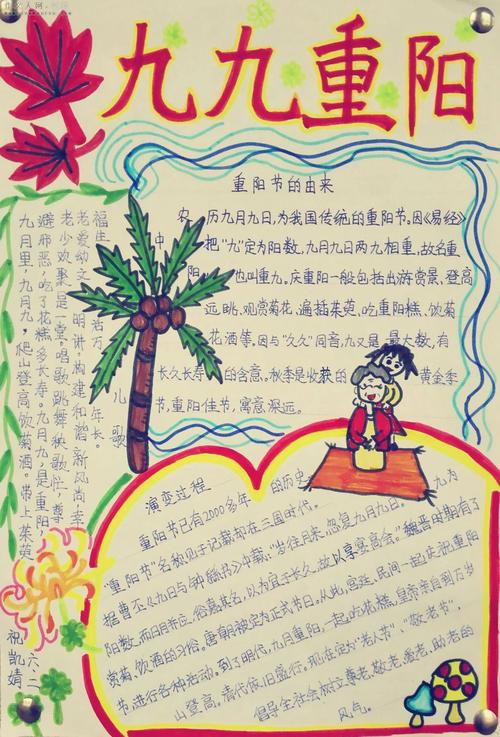 九九重阳
重阳节的由来
农历九月九日,为我国传统的重阳节。因《易经》
中把“九”定为阳数,九月九日两九相重,故名重
阳,也叫重九。庆重阳一般包括出游赏景、登高
远眺、观赏菊花、遍插茱萸、吃重阳糕、饮菊
花酒等,因与“久久”同音,九又是最大数,有
长久长寿的含意,秋季是收获的黄金季
节,重阳佳节,寓意深远。
儿歌
九月里,九月九,爬山登高饮菊酒。带上茱萸
避邪恶,吃了花糕多长寿。九月九,是重阳,
老少欢聚是一堂。唱歌跳舞秧歌忙,尊
老爱幼文明讲。构建和谐新风尚幸
福生活万年长。
演变过程
重阳节已有2000多年的历史
“重阳节”名称见于记载却在三国时代。
据曹丕《九日与钟繇书》中载:“岁往月来,忽复九月九日。九为
阳数,而日月并应,俗嘉其名,以为宜于长久,故以享宴高会。”魏晋时期有了
赏菊、饮酒的习俗。唐朝被定为正式节日。从此,宫廷、民间一起庆祝重阳
节,进行各种活动。到了明代,九月重阳,一起吃花糕,皇帝亲自到万岁
山登高。清代依旧盛行。现在定为“老人节”、“敬老节”,
倡导全社会树立尊老、敬老、爱老、助老的
风气。
六、二
祝凯婧